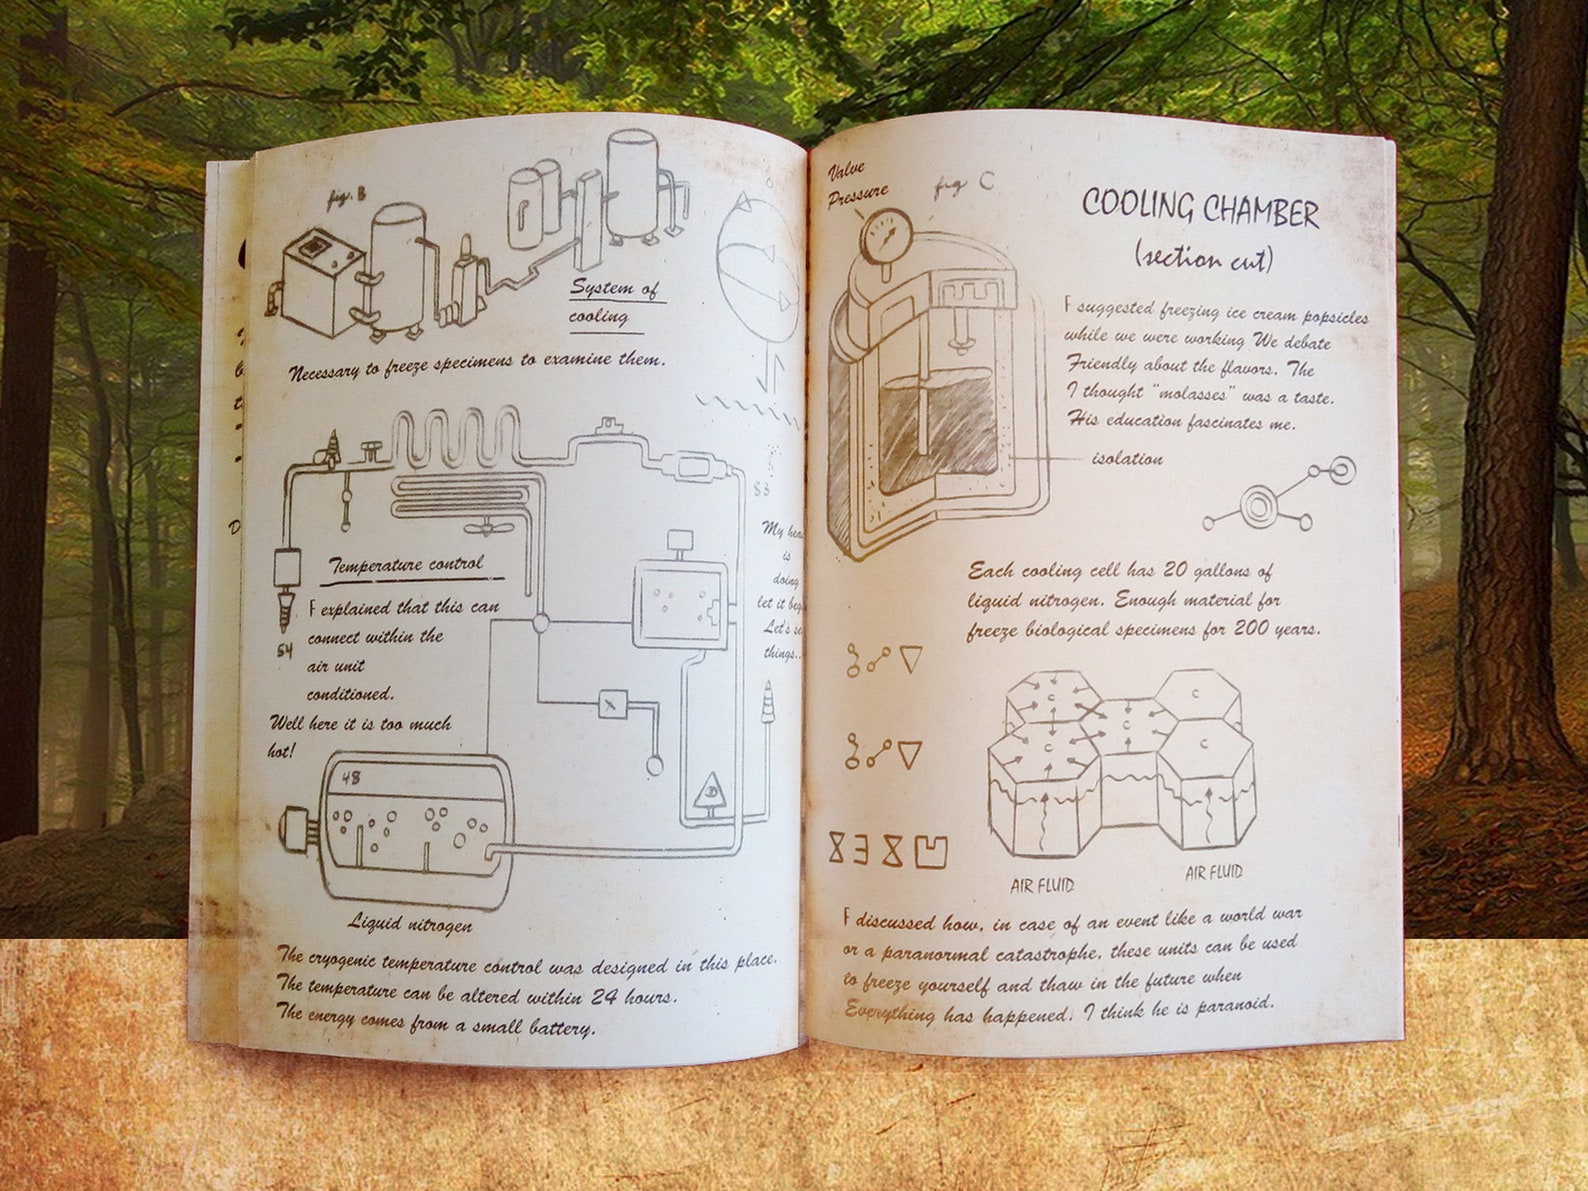 fig. B
System of
cooling
Necessary to freeze specimens to examine them.
83
My
is
doing
let it
Let's
things..
Temperature control
F explained that this can
connect within the
air unit
conditioned.
Well here it is too much
hot!
54
48
Liquid nitrogen
The cryogenic temperature control was designed in this place.
The temperature can be altered within 24 hours.
The energy comes from a small battery.
Valve
Pressure
fig C
COOLING CHAMBER
(section cut)
F suggested freezing ice cream popsicles
while we were working We debate
Friendly about the flavors. The
I thought "molasses" was a taste.
His education fascinates me.
isolation
Each cooling cell has 20 gallons of
liquid nitrogen. Enough material for
freeze biological specimens for 200 years.
C
C
C
C
C
AIR FLUID
AIR FLUID
F discussed how, in case of an event like a world war
or a paranormal catastrophe, these units can be used
to freeze yourself and thaw in the future when
Everything has happened. I think he is paranoid.